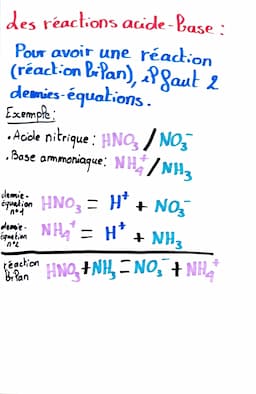 des réactions acide-Base :
Pour avoir une réaction
(réaction Bilan), il faut 2
demies-équations.
Exemple :
• Acide nitrique : HNO₃ / NO₃⁻
• Base ammoniaque : NH₄⁺ / NH₃
demie-équation n°1 HNO₃ = H⁺ + NO₃⁻
demie-équation n°2 NH₄⁺ = H⁺ + NH₃
réaction Bilan HNO₃ + NH₃ = NO₃⁻ + NH₄⁺